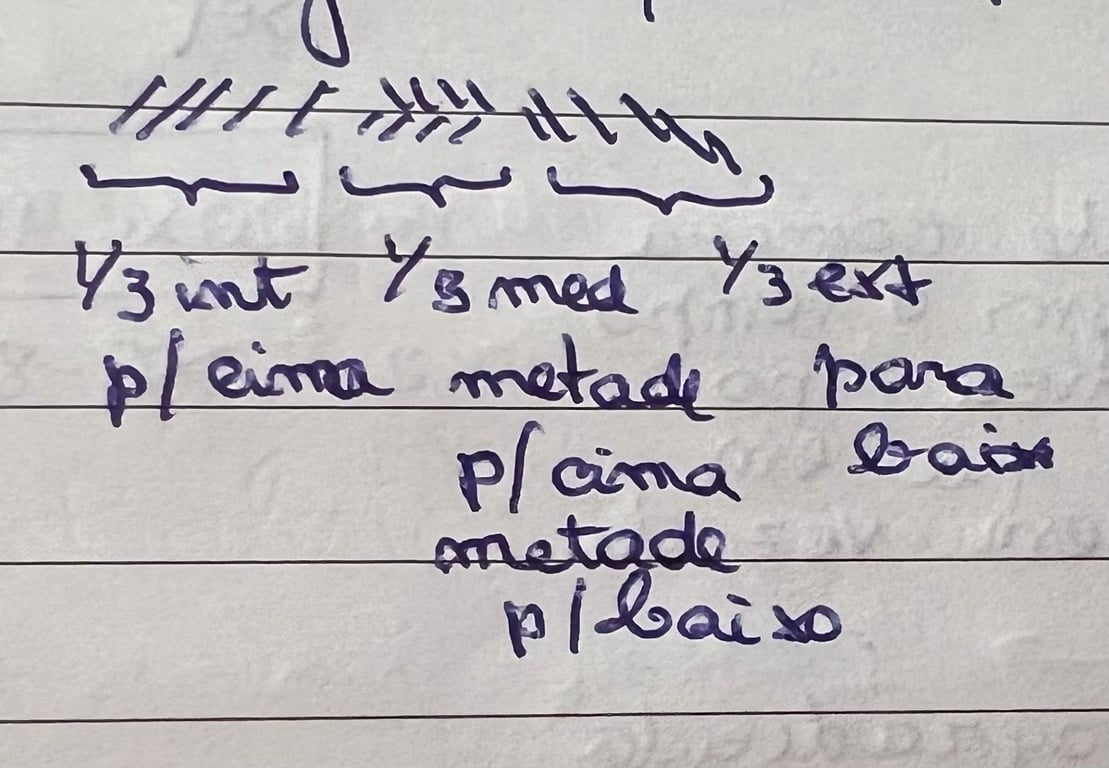 1/3 int 1/3 med 1/3 ext
p/ cima metade para
p/ cima baixo
metade
p/ baixo